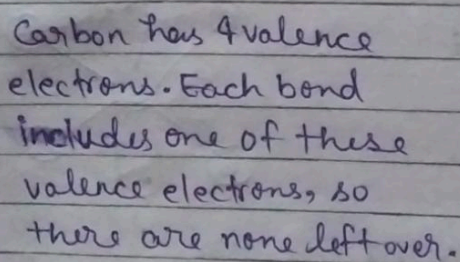 Carbon has 4 valence
electrons. Each bond
includes one of these
valence electrons, so
there are none left over.